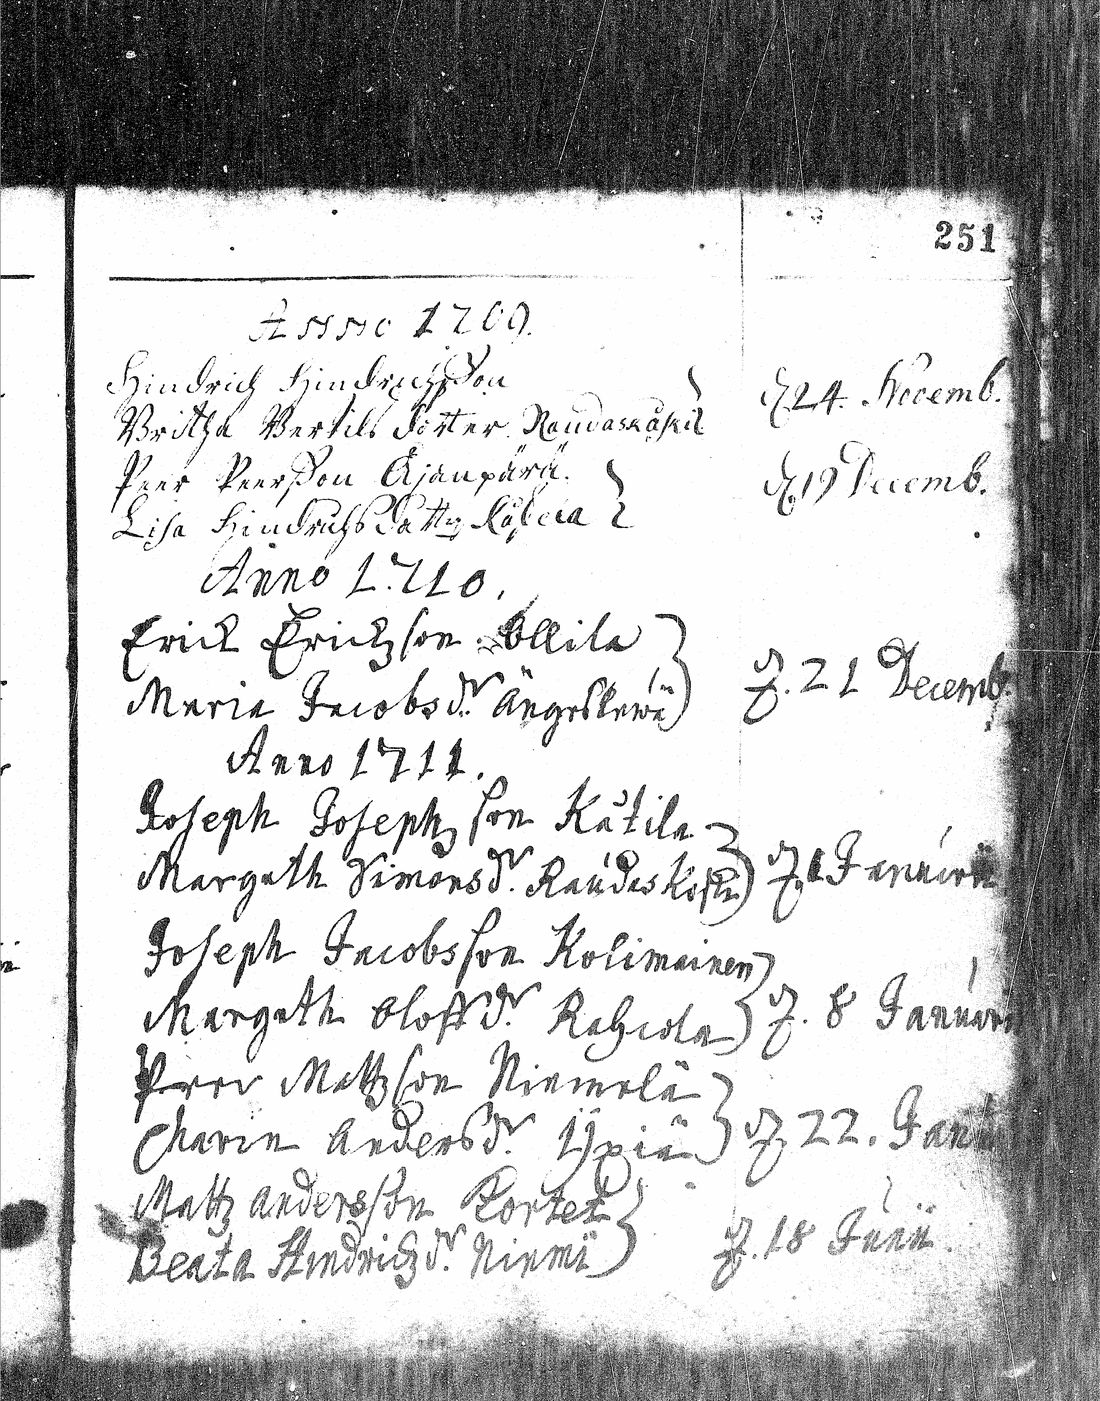 251
Anno 1709.
Hindrich Hindrichsson
Britha Bertils dotter Raudaskåski d. 24. Novemb.
Peer Peersson Ajanpärä.
Lisa Hindrichsdotter d. 19 Decemb.
Anno 1710.
Erick Erickzson Ollila
Maria Jacobsdr. Ängeslewä d. 21 Decemb.
Anno 1711.
Joseph Josephzson Katila
Margeth Simonsdr. Raudaskoski d. 1 Januarii
Joseph Jacobsson Kolimainen
Margeth Oloffdr. Rahiola d. 8 Januari
Peer Mattzson Niemelä
Charin Andersdr. Ypiä d. 22. Janu
Mattz Andersson Kortet
Beata Hindrichzdr. Niemi d. 18 Junii.